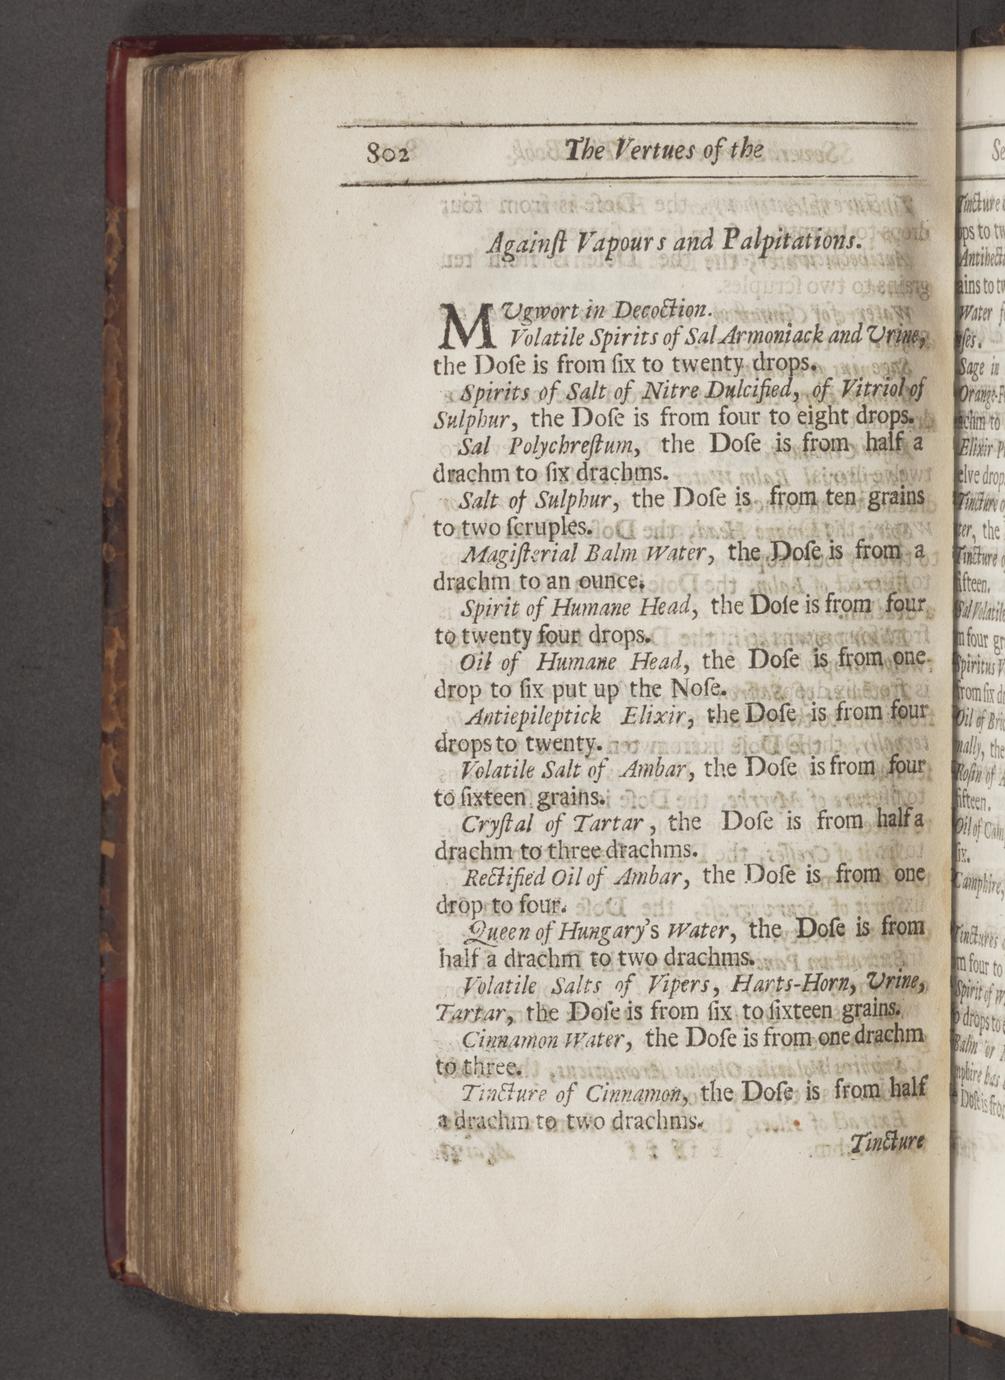 802
The Vertues of the
Againſt Vapours and Palpitations.
MUgwort in Decoction.
Volatile Spirits of Sal Armoniack and Urine,
the Doſe is from ſix to twenty drops.
Spirits of Salt of Nitre Dulcified, of Vitriol of
Sulphur, the Doſe is from four to eight drops.
Sal Polychreſtum, the Doſe is from half a
drachm to ſix drachms.
Salt of Sulphur, the Doſe is from ten grains
to two ſcruples.
Magiſterial Balm Water, the Doſe is from a
drachm to an ounce.
Spirit of Humane Head, the Doſe is from four
to twenty four drops.
Oil of Humane Head, the Doſe is from one
drop to ſix put up the Noſe.
Antiepileptick Elixir, the Doſe is from four
drops to twenty.
Volatile Salt of Ambar, the Doſe is from four
to ſixteen grains.
Cryſtal of Tartar, the Doſe is from half a
drachm to three drachms.
Rectified Oil of Ambar, the Doſe is from one
drop to four.
Queen of Hungary's Water, the Doſe is from
half a drachm to two drachms.
Volatile Salts of Vipers, Harts-Horn, Urine,
Tartar, the Doſe is from ſix to ſixteen grains.
Cinnamon Water, the Doſe is from one drachm
to three.
Tincture of Cinnamon, the Doſe is from half
a drachm to two drachms.
Tincture